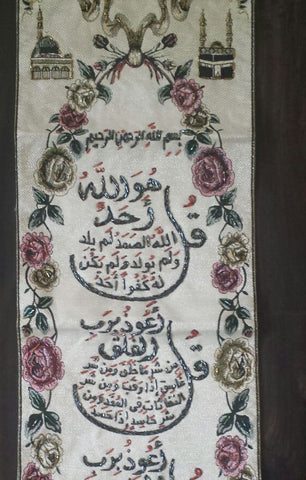 بسم الله الرحمن الرحيم
قل هو الله
أحد
الله الصمد لم يلد
ولم يولد ولم يكن
له كفوا أحد
قل أعوذ برب
الفلق
من شر ما خلق ومن شر
غاسق إذا وقب ومن شر
النفاثات في العقد ومن
شر حاسد إذا حسد
أعوذ برب